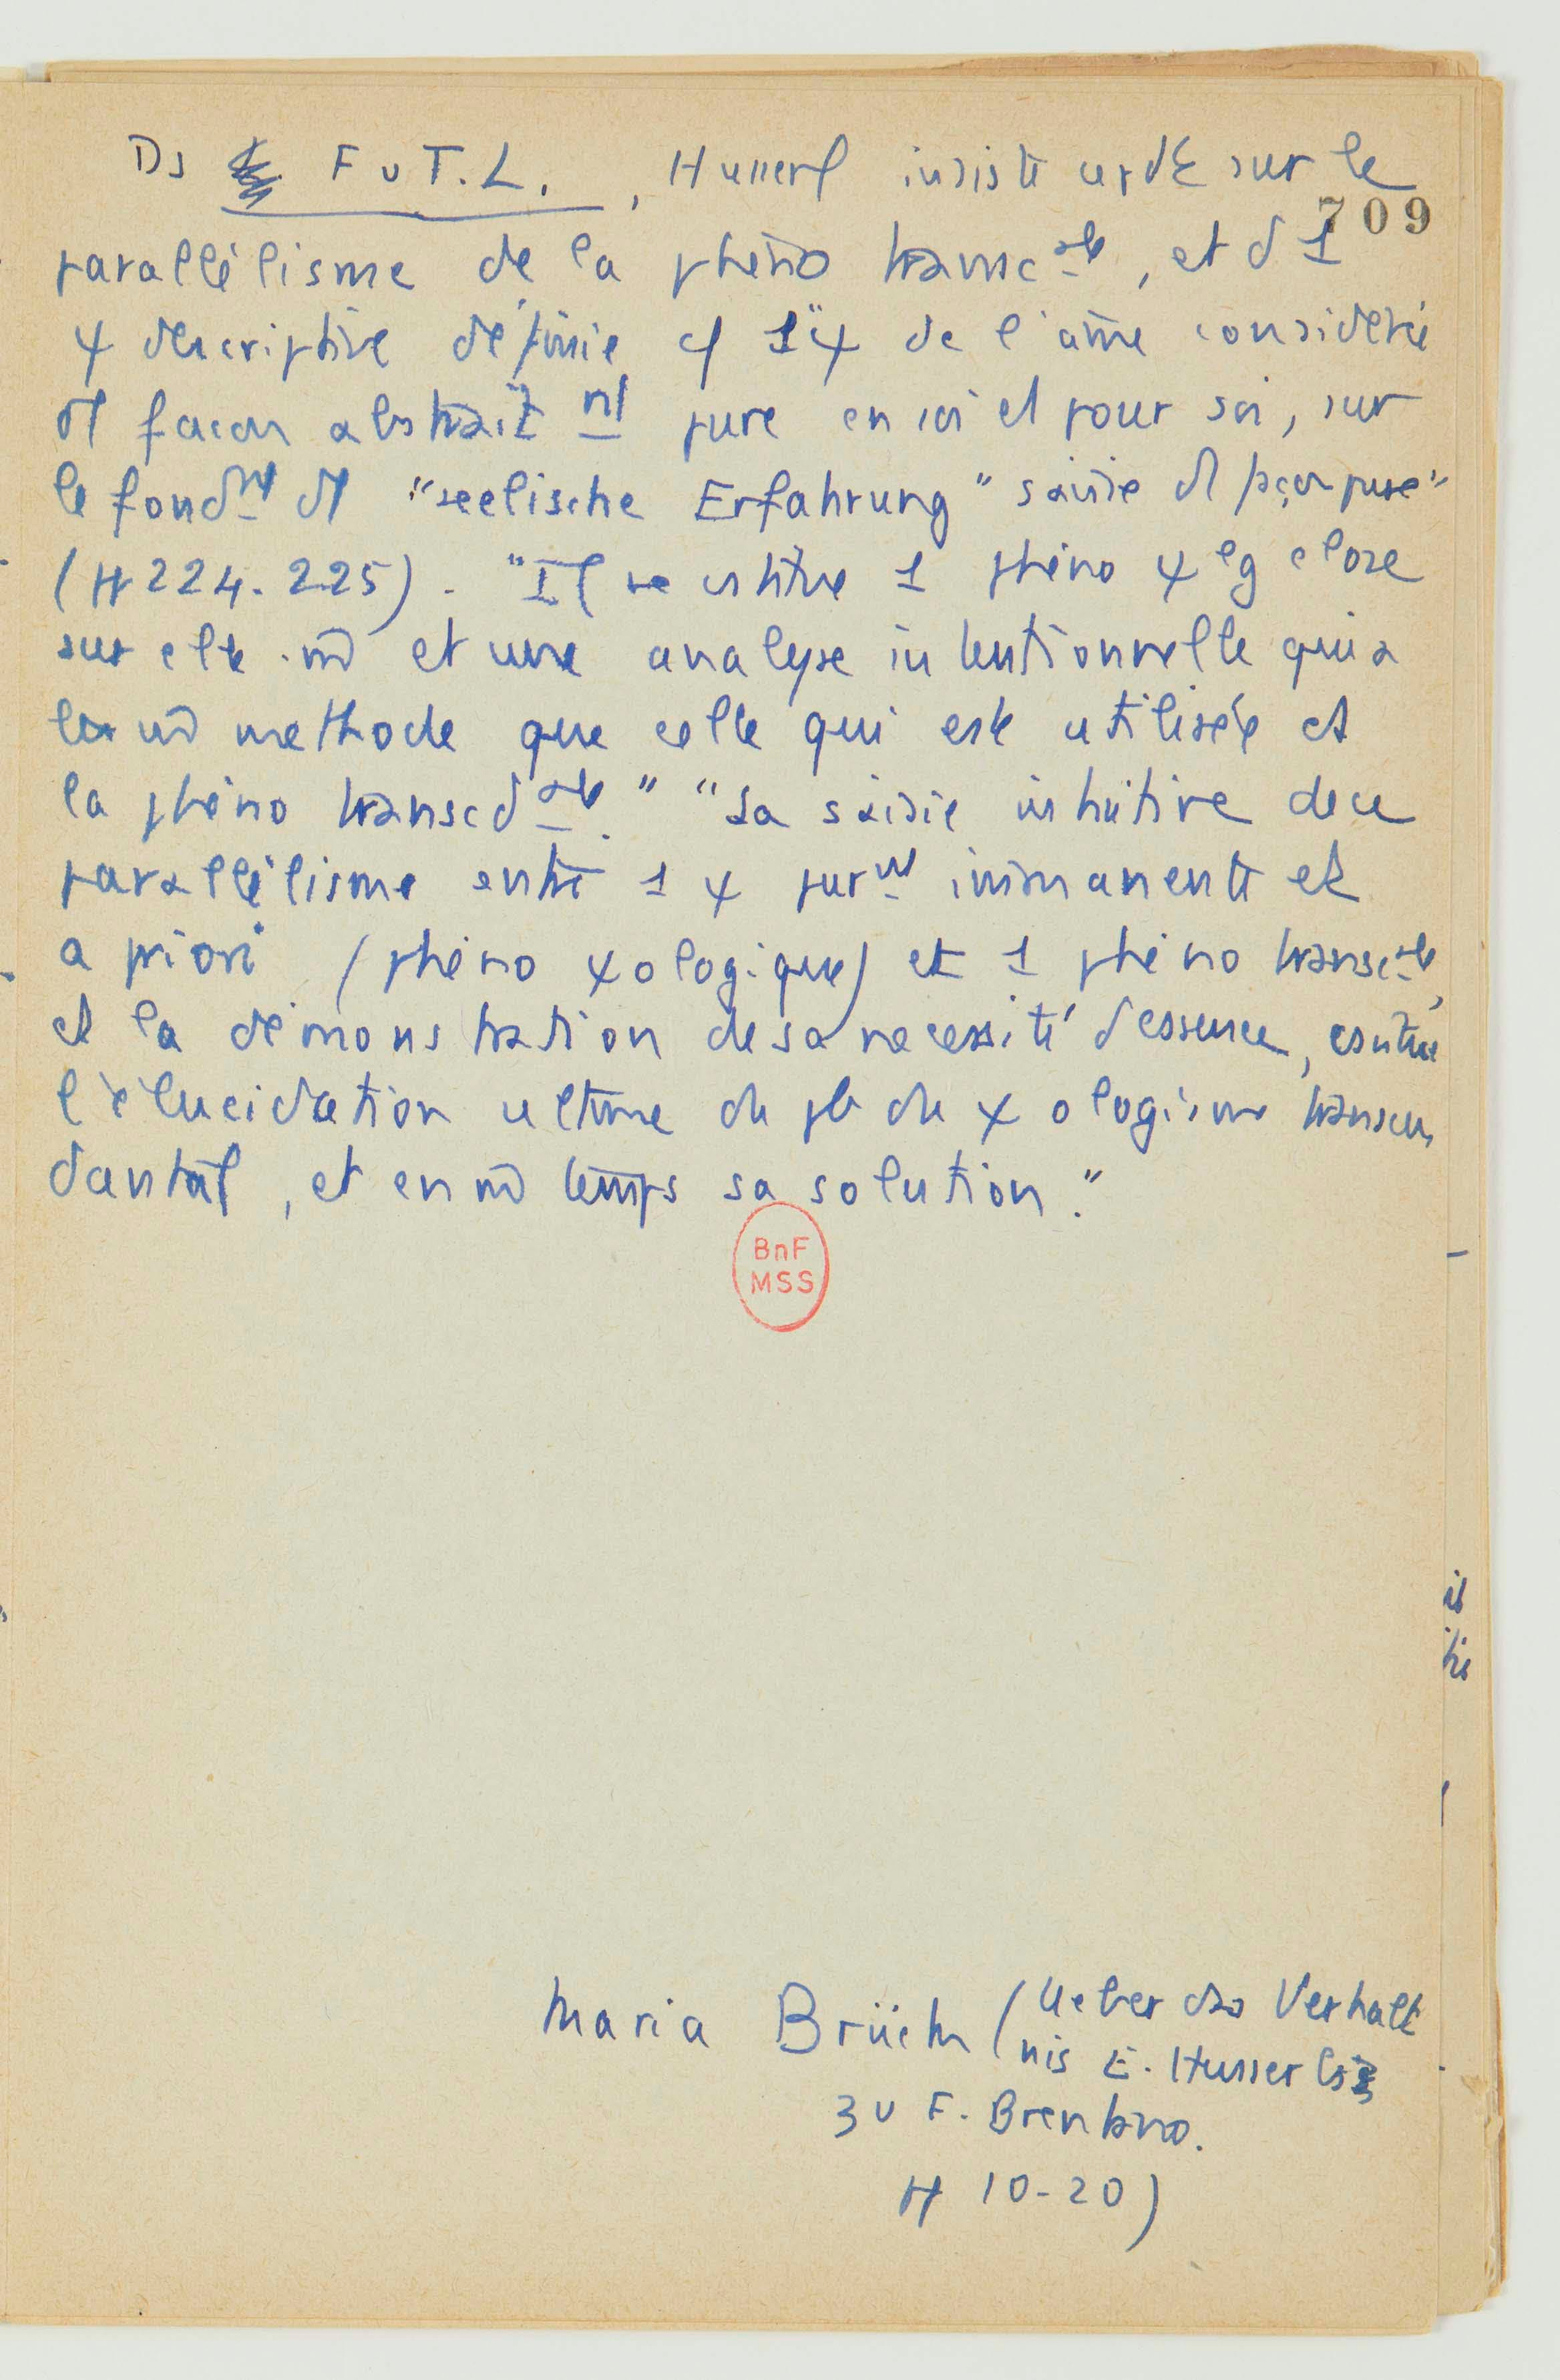 Ds F u T.L., Husserl insiste sur le
709
parallélisme de la phéno transc ale, et d 1
ψ descriptive définie 1 ψ de l'âme considérée
façon abstraite nt pure en soi et pour soi, sur
le fond nt "seelische Erfahrung" saisie façon pure"
(pp 224-225). "Il se 1 phéno ψ lg close
sur elle-m̂ et une analyse intentionnelle qui a
la m̂ méthode que celle qui est utilisée
la phéno transcd ale." "La saisie intuitive de ce
parallélisme entre 1 ψ pur nt immanente et
a priori (phéno ψologique) et 1 phéno transc ale,
et la démonstration de sa nécessité d'essence,
l'élucidation ultime du pb du ψologisme transcen
dantal, et en m̂ temps sa solution."
BnF
MSS
Maria Brück (Ueber das Verhält
nis E. Husserls
zu F. Brentano.
pp 10-20)